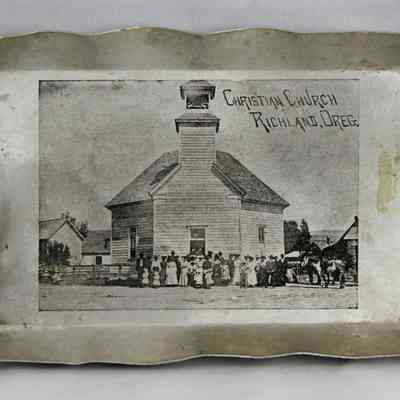 CHRISTIAN CHURCH
RICHLAND, OREG.